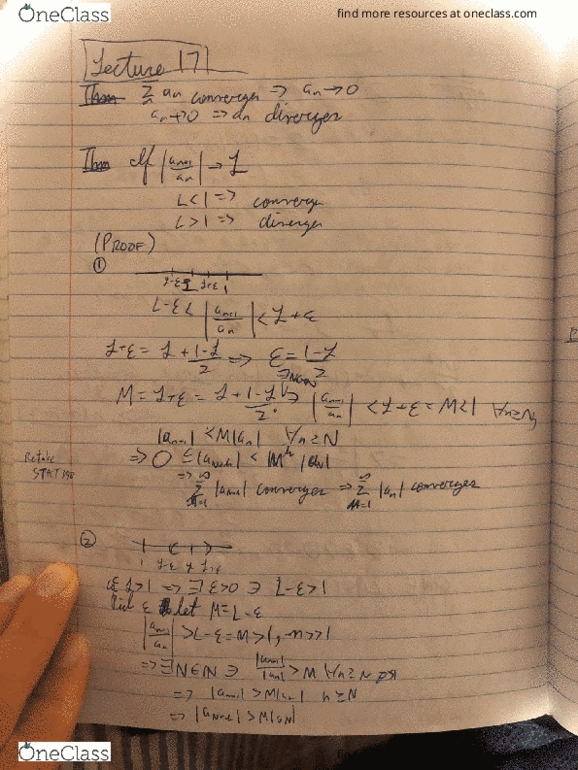 OneClass
find more resources at oneclass.com
Lecture 17
Thm Σ an converges => an→0
an↛0 => an diverges
Thm If |an+1/an| → L
L<1 => converge
L>1 => diverges
(PROOF)
①
L-ε L L+ε 1
L-ε < |an+1/an| < L+ε
L+ε = L + 1-L/2 => ε = 1-L/2
∃N∈N
M = L+ε = L + 1-L/2 => |an+1/an| < L+ε = M<1 ∀n≥N
|an+1| < M|an| ∀n≥N
Retake => 0 ≤ |aN+n| < M^n |aN|
STAT 190 => Σ n=1 ∞ |aN+n| converges => Σ n=1 ∞ |an| converges
②
1 L-ε L L+ε
If L>1 => ∃ε>0 ∋ L-ε>1
Pick ε & let M=L-ε
|an+1/an| > L-ε=M>1, n>>1
=> ∃N∈N ∋ |an+1|/|an| > M ∀n≥N
=> |an+1| > M|an| n≥N
=> |aN+1| > M|aN|
OneClass